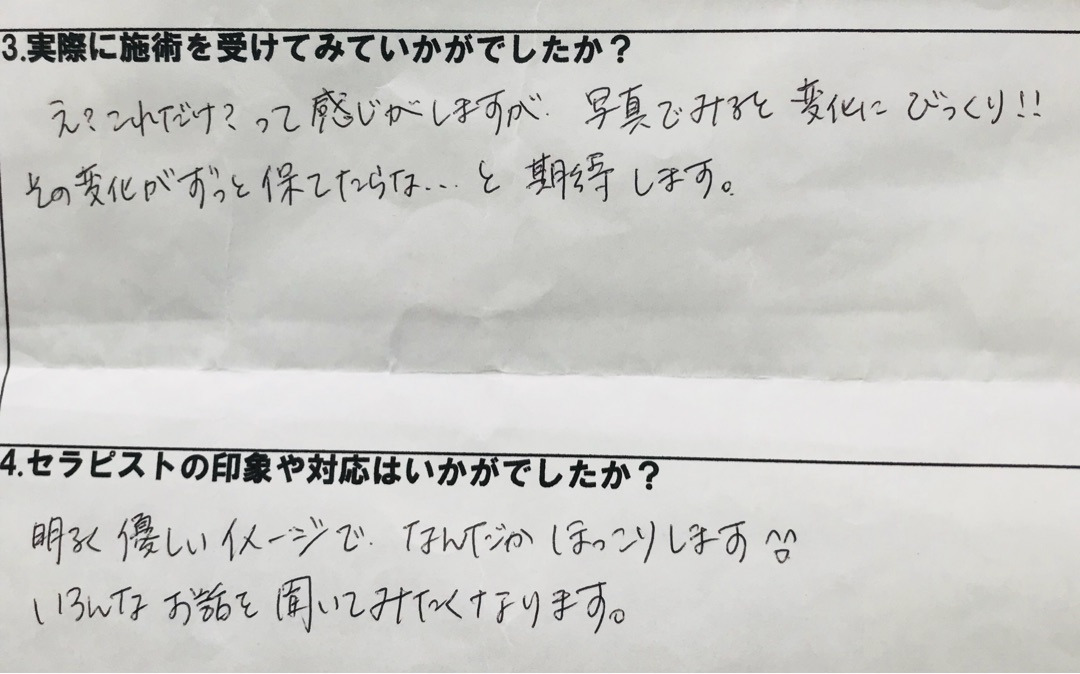 3.実際に施術を受けてみていかがでしたか？
え？これだけ？って感じがしますが、写真でみると変化にびっくり!!
その変化がずっと保てたらな…と期待します。
4.セラピストの印象や対応はいかがでしたか？
明るく優しいイメージで、なんだかほっこりします^^
いろんなお話を聞いてみたくなります。